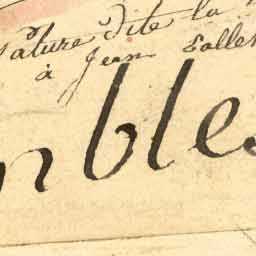 Pature dite la
à Jean Salle
nbles